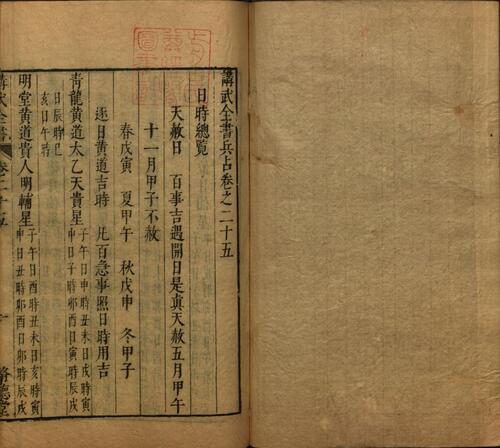 講武全書兵占卷之二十五
日時總覧
天赦日 百事吉遇開日是真天赦五月甲午
十一月甲子不赦
春戊寅 夏甲午 秋戊申 冬甲子
逐日黄道吉時 凡百急事照日時用吉
青龍黄道太乙天貴星 子午日申時丑未日戌時寅
申日子時卯酉日寅時辰戌
日辰時巳
亥日午時
明堂黄道貴人明輔星 子午日酉時丑未日亥時寅
申日丑時卯酉日卯時辰戌
講武全書 卷二十五 一